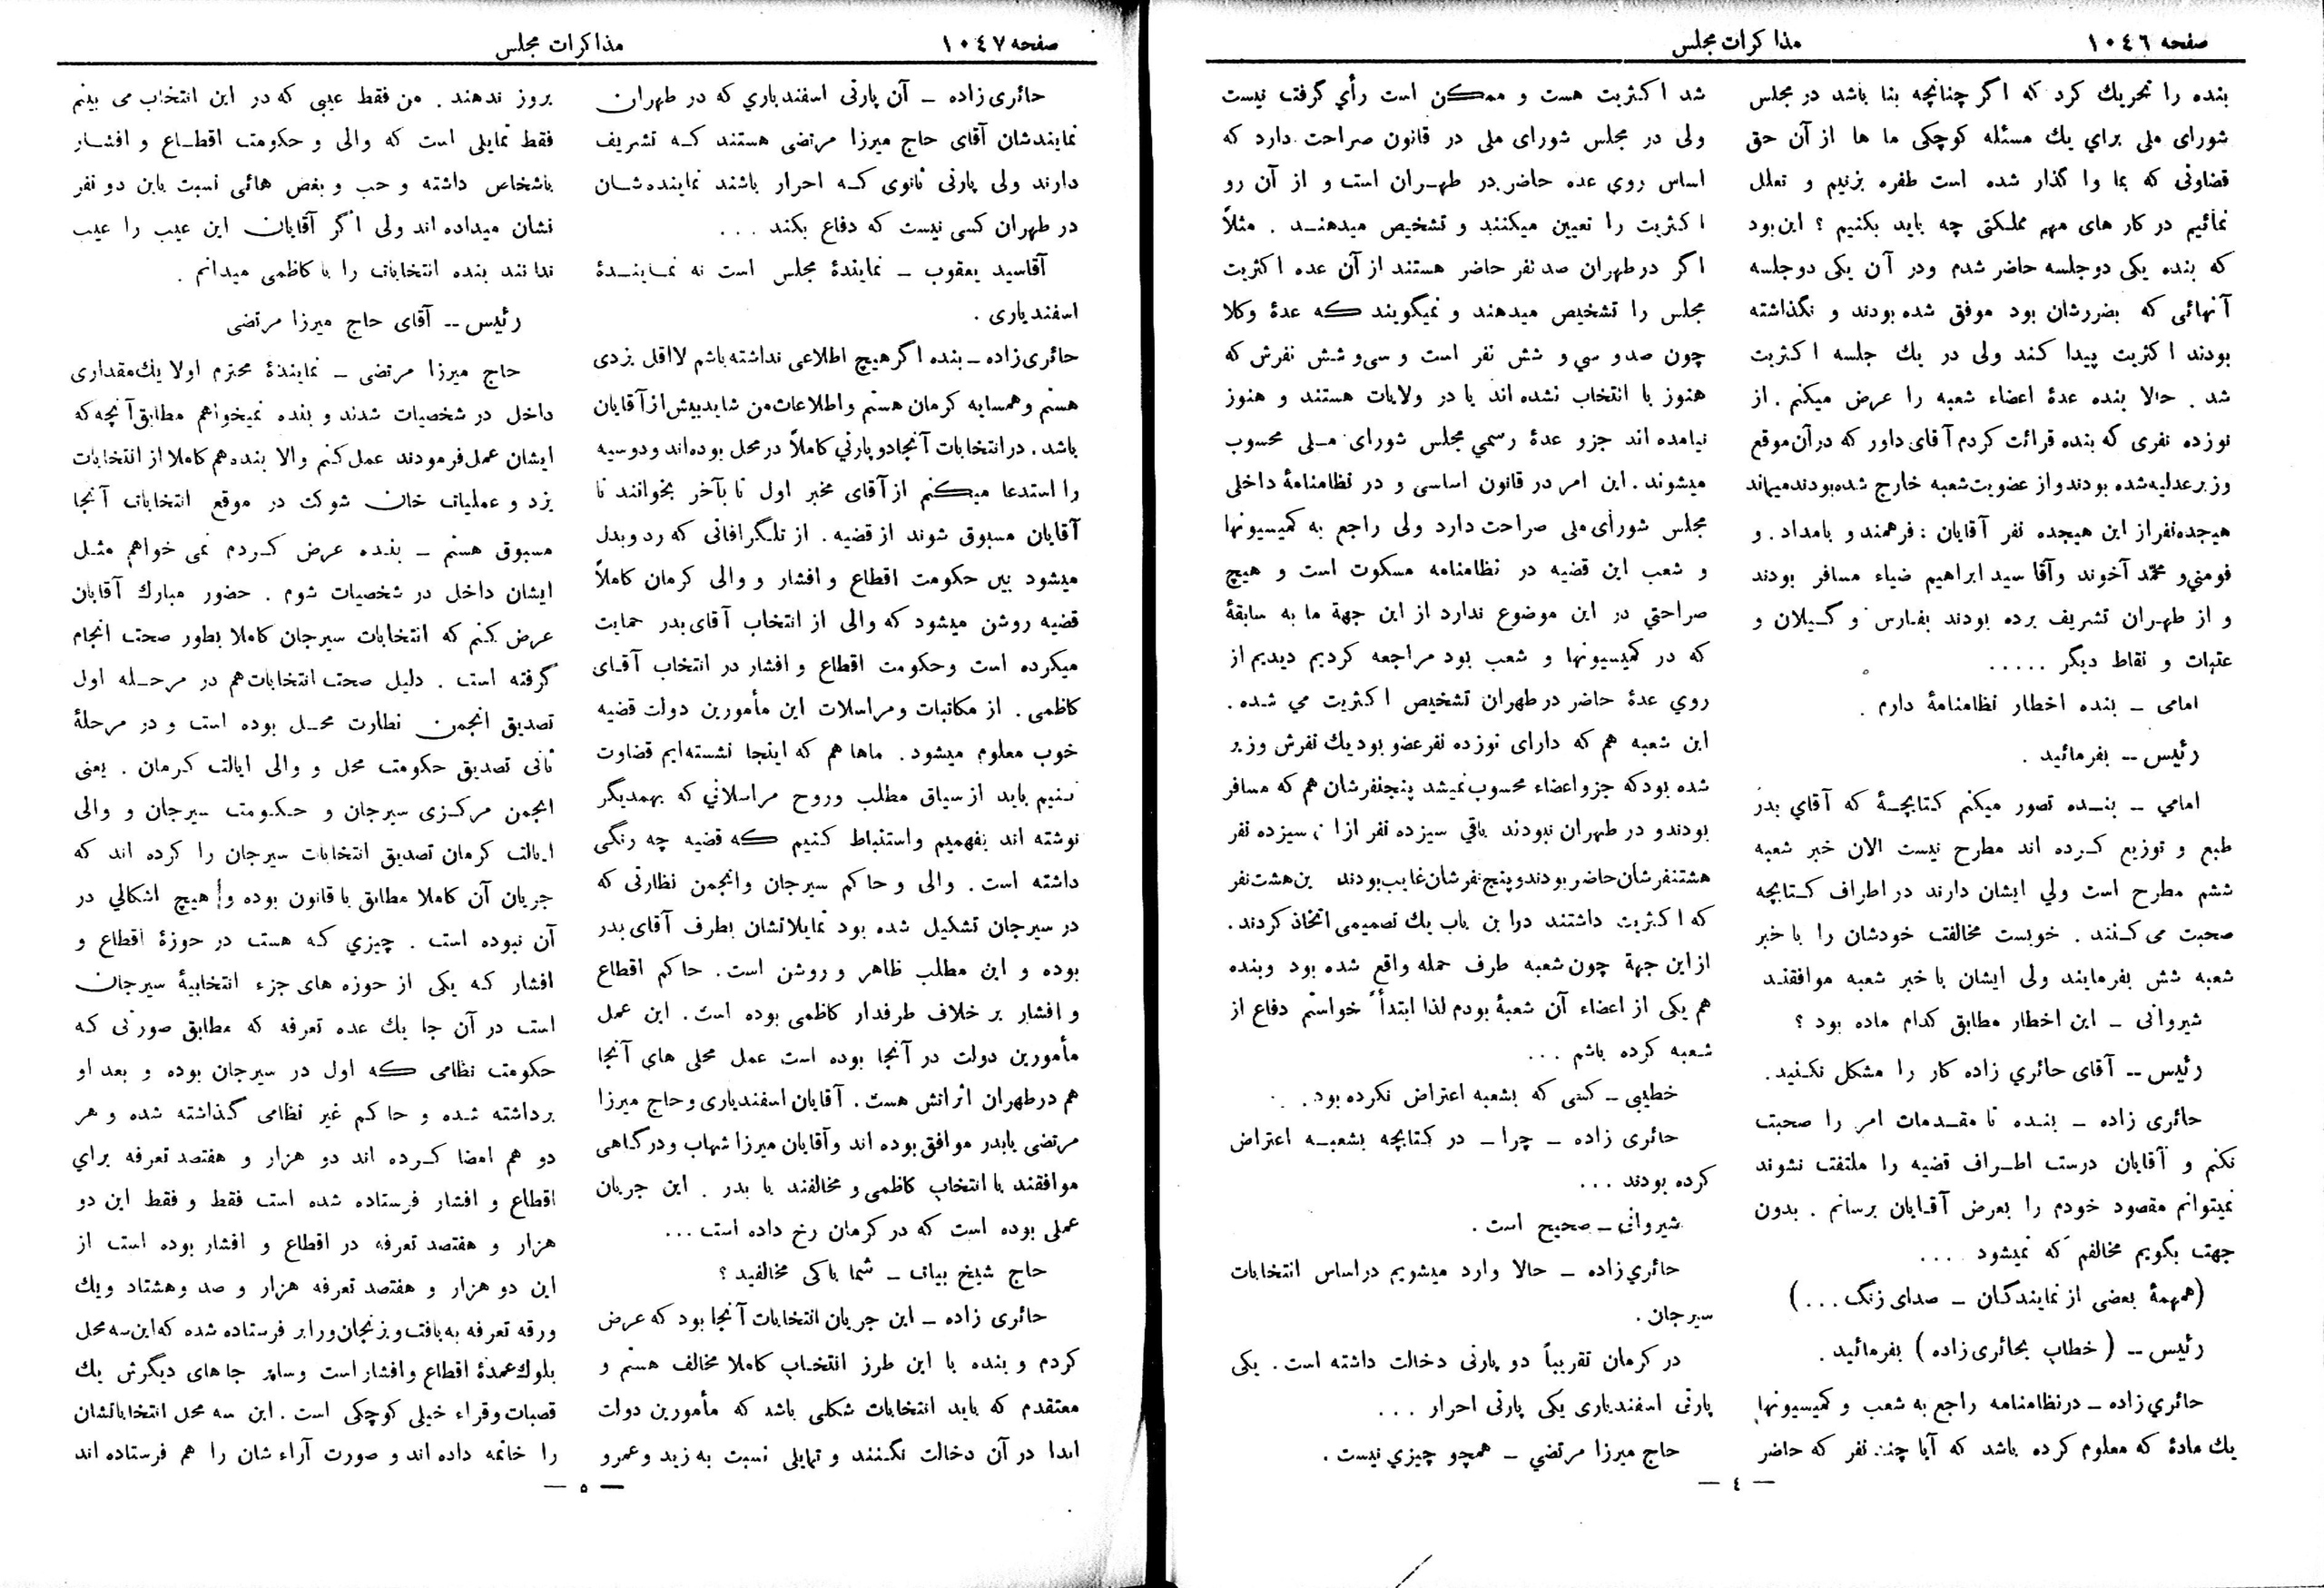 صفحه ۱۰٤٦
مذاکرات مجلس
بنده را تحریك کرد که اگر چنانچه بنا باشد در مجلس
شورای ملی برای یك مسئله کوچکی ما ها از آن حق
قضاوتی که بما وا گذار شده است طفره بزنیم و تعلل
نمائیم در کار های مهم مملکتی چه باید بکنیم ؟ این بود
که بنده یکی دو جلسه حاضر شدم ودر آن یکی دو جلسه
آنهائی که بضررشان بود موفق شده بودند و نگذاشته
بودند اکثریت پیدا کند ولی در یك جلسه اکثریت
شد . حالا بنده عدهٔ اعضاء شعبه را عرض میکنم . از
نوزده نفری که بنده قرائت کردم آقای داور که در آن موقع
وزیر عدلیه شده بودند و از عضویت شعبه خارج شده بودند میماند
هیجده نفر از این هیجده نفر آقایان : فرهمند و بامداد . و
فومنی و محمّد آخوند وآقا سید ابراهیم ضیاء مسافر بودند
و از طهران تشریف برده بودند بفارس و گیلان و
عتبات و نقاط دیگر .....
امامی ـ بنده اخطار نظامنامهٔ دارم .
رئیس -- بفرمائید .
امامي ـ بنده تصور میکنم کتابچهٔ که آقاي بدر
طبع و توزیع کرده اند مطرح نیست الان خبر شعبه
ششم مطرح است ولي ایشان دارند در اطراف کتابچه
صحبت می کنند . خوبست مخالفت خودشان را با خبر
شعبه شش بفرمایند ولی ایشان با خبر شعبه موافقند
شیروانی ـ این اخطار مطابق کدام ماده بود ؟
رئیس -- آقای حائري زاده کار را مشکل نکنید .
حائری زاده ـ بنده تا مقدمات امر را صحبت
نکنم و آقایان درست اطراف قضیه را ملتفت نشوند
نمیتوانم مقصود خودم را بعرض آقایان برسانم . بدون
جهت بگویم مخالفم که نمیشود ....
(همهمهٔ بعضی از نمایندگان ـ صدای زنگ ...)
رئیس -- ( خطاب بحائری زاده ) بفرمائید .
حائري زاده ـ در نظامنامه راجع به شعب و کمیسیونها
یك مادهٔ که معلوم کرده باشد که آیا چند نفر که حاضر
شد اکثریت هست و ممکن است رأي گرفت نیست
ولی در مجلس شورای ملی در قانون صراحت دارد که
اساس روي عده حاضر در طهران است و از آن رو
اکثریت را تعیین میکنند و تشخیص میدهند . مثلاً
اگر در طهران صد نفر حاضر هستند از آن عده اکثریت
مجلس را تشخیص میدهند و نمیگویند که عدهٔ وکلا
چون صدو سی و شش نفر است و سی و شش نفرش که
هنوز با انتخاب نشده اند یا در ولایات هستند و هنوز
نیامده اند جزو عدهٔ رسمي مجلس شورای ملی محسوب
میشوند . این امر در قانون اساسی و در نظامنامهٔ داخلی
مجلس شورای ملی صراحت دارد ولی راجع به کمیسیونها
و شعب این قضیه در نظامنامه مسکوت است و هیچ
صراحتي در این موضوع ندارد از این جهة ما به سابقهٔ
که در کمیسیونها و شعب بود مراجعه کردیم دیدیم از
روي عدهٔ حاضر در طهران تشخیص اکثریت می شده .
این شعبه هم که دارای نوزده نفر عضو بود یك نفرش وزیر
شده بود که جزو اعضاء محسوب نمیشد پنجنفرشان هم که مسافر
بودند و در طهران نبودند باقي سیزده نفر از این سیزده نفر
هشتنفرشان حاضر بودند و پنج نفرشان غایب بودند این هشت نفر
که اکثریت داشتند در این باب یك تصمیمی اتخاذ کردند .
از این جهة چون شعبه طرف حمله واقع شده بود وبنده
هم یکی از اعضاء آن شعبهٔ بودم لذا ابتدأً خواستم دفاع از
شعبه کرده باشم ...
خطیبی ـ کسی که بشعبه اعتراض نکرده بود .
حائری زاده ـ چرا ـ در کتابچه بشعبه اعتراض
کرده بودند ...
شیروانی ـ صحیح است .
حائري زاده ـ حالا وارد میشویم در اساس انتخابات
سیرجان .
در کرمان تقریباً دو پارتی دخالت داشته است . یکی
پارتی اسفندیاری یکی پارتی احرار ...
حاج میرزا مرتضي ـ همچو چیزي نیست .
— ٤ —
صفحه ۱۰٤۷
مذاکرات مجلس
حائری زاده ـ آن پارتی اسفندیاري که در طهران
نمایندشان آقای حاج میرزا مرتضی هستند که تشریف
دارند ولی پارتی ثانوی که احرار باشند نماینده شان
در طهران کسی نیست که دفاع بکند ...
آقاسید یعقوب ـ نمایندهٔ مجلس است نه نمایندهٔ
اسفندیاری .
حائری زاده ـ بنده اگر هیچ اطلاعی نداشته باشم لااقل یزدی
هستم و همسایه کرمان هستم و اطلاعات من شاید بیش از آقایان
باشد . در انتخابات آنجا دو پارتي کاملاً در محل بوده اند و دوسیه
را استدعا میکنم از آقای مخبر اول تا بآخر بخوانند تا
آقایان مسبوق شوند از قضیه . از تلگرافاتی که رد و بدل
میشود بین حکومت اقطاع و افشار و والی کرمان کاملاً
قضیه روشن میشود که والی از انتخاب آقای بدر حمایت
میکرده است وحکومت اقطاع و افشار در انتخاب آقای
کاظمی . از مکاتبات و مراسلات این مأمورین دولت قضیه
خوب معلوم میشود . ماها هم که اینجا نشسته ایم قضاوت
کنیم باید از سیاق مطلب وروح مراسلاتي که بهمدیگر
نوشته اند بفهمیم واستنباط کنیم که قضیه چه رنگی
داشته است . والی و حاکم سیرجان وانجمن نظارتی که
در سیرجان تشکیل شده بود تمایلاتشان بطرف آقای بدر
بوده و این مطلب ظاهر و روشن است . حاکم اقطاع
و افشار بر خلاف طرفدار کاظمی بوده است . این عمل
مأمورین دولت در آنجا بوده است عمل محلی های آنجا
هم در طهران اثراتش هست . آقایان اسفندیاری و حاج میرزا
مرتضی بابدر موافق بوده اند وآقایان میرزا شهاب و درگاهی
موافقند با انتخاب کاظمی و مخالفند با بدر . این جریان
عملی بوده است که در کرمان رخ داده است ...
حاج شیخ بیات ـ شما با کی مخالفید ؟
حائری زاده ـ این جریان انتخابات آنجا بود که عرض
کردم و بنده با این طرز انتخاب کاملا مخالف هستم و
معتقدم که باید انتخابات شکلی باشد که مأمورین دولت
ابدا در آن دخالت نکنند و تمایلی نسبت به زید و عمرو
بروز ندهند . من فقط عیبی که در این انتخاب می بینم
فقط تمایلی است که والی و حکومت اقطاع و افشار
باشخاص داشته و حب و بغض هائی نسبت باین دو نفر
نشان میداده اند ولی اگر آقایان این عیب را عیب
ندانند بنده انتخابات را با کاظمی میدانم .
رئیس -- آقای حاج میرزا مرتضی
حاج میرزا مرتضی ـ نمایندهٔ محترم اولا یك مقداری
داخل در شخصیات شدند و بنده نمیخواهم مطابق آنچه که
ایشان عمل فرمودند عمل کنم والا بنده هم کاملا از انتخابات
یزد و عملیات خان شوکت در موقع انتخابات آنجا
مسبوق هستم ـ بنده عرض کردم نمی خواهم مثل
ایشان داخل در شخصیات شوم . حضور مبارك آقایان
عرض کنم که انتخابات سیرجان کاملا بطور صحت انجام
گرفته است . دلیل صحت انتخابات هم در مرحله اول
تصدیق انجمن نظارت محل بوده است و در مرحلهٔ
ثانی تصدیق حکومت محل و والی ایالت کرمان . یعنی
انجمن مرکزی سیرجان و حکومت سیرجان و والی
ایالت کرمان تصدیق انتخابات سیرجان را کرده اند که
جریان آن کاملا مطابق با قانون بوده و هیچ اشکالي در
آن نبوده است . چیزي که هست در حوزهٔ اقطاع و
افشار که یکی از حوزه های جزء انتخابیهٔ سیرجان
است در آن جا یك عده تعرفه که مطابق صورتی که
حکومت نظامی که اول در سیرجان بوده و بعد او
برداشته شده و حاکم غیر نظامی گذاشته شده و هر
دو هم امضا کرده اند دو هزار و هفتصد تعرفه براي
اقطاع و افشار فرستاده شده است فقط و فقط این دو
هزار و هفتصد تعرفه در اقطاع و افشار بوده است از
این دو هزار و هفتصد تعرفه هزار و صد وهشتاد ویك
ورقه تعرفه به بافت و بزنجان و رابر فرستاده شده که این سه محل
بلوك عمدهٔ اقطاع و افشار است وسایر جاهای دیگرش یك
قصبات وقراء خیلی کوچکی است . این سه محل انتخاباتشان
را خاتمه داده اند و صورت آراء شان را هم فرستاده اند
— ٥ —